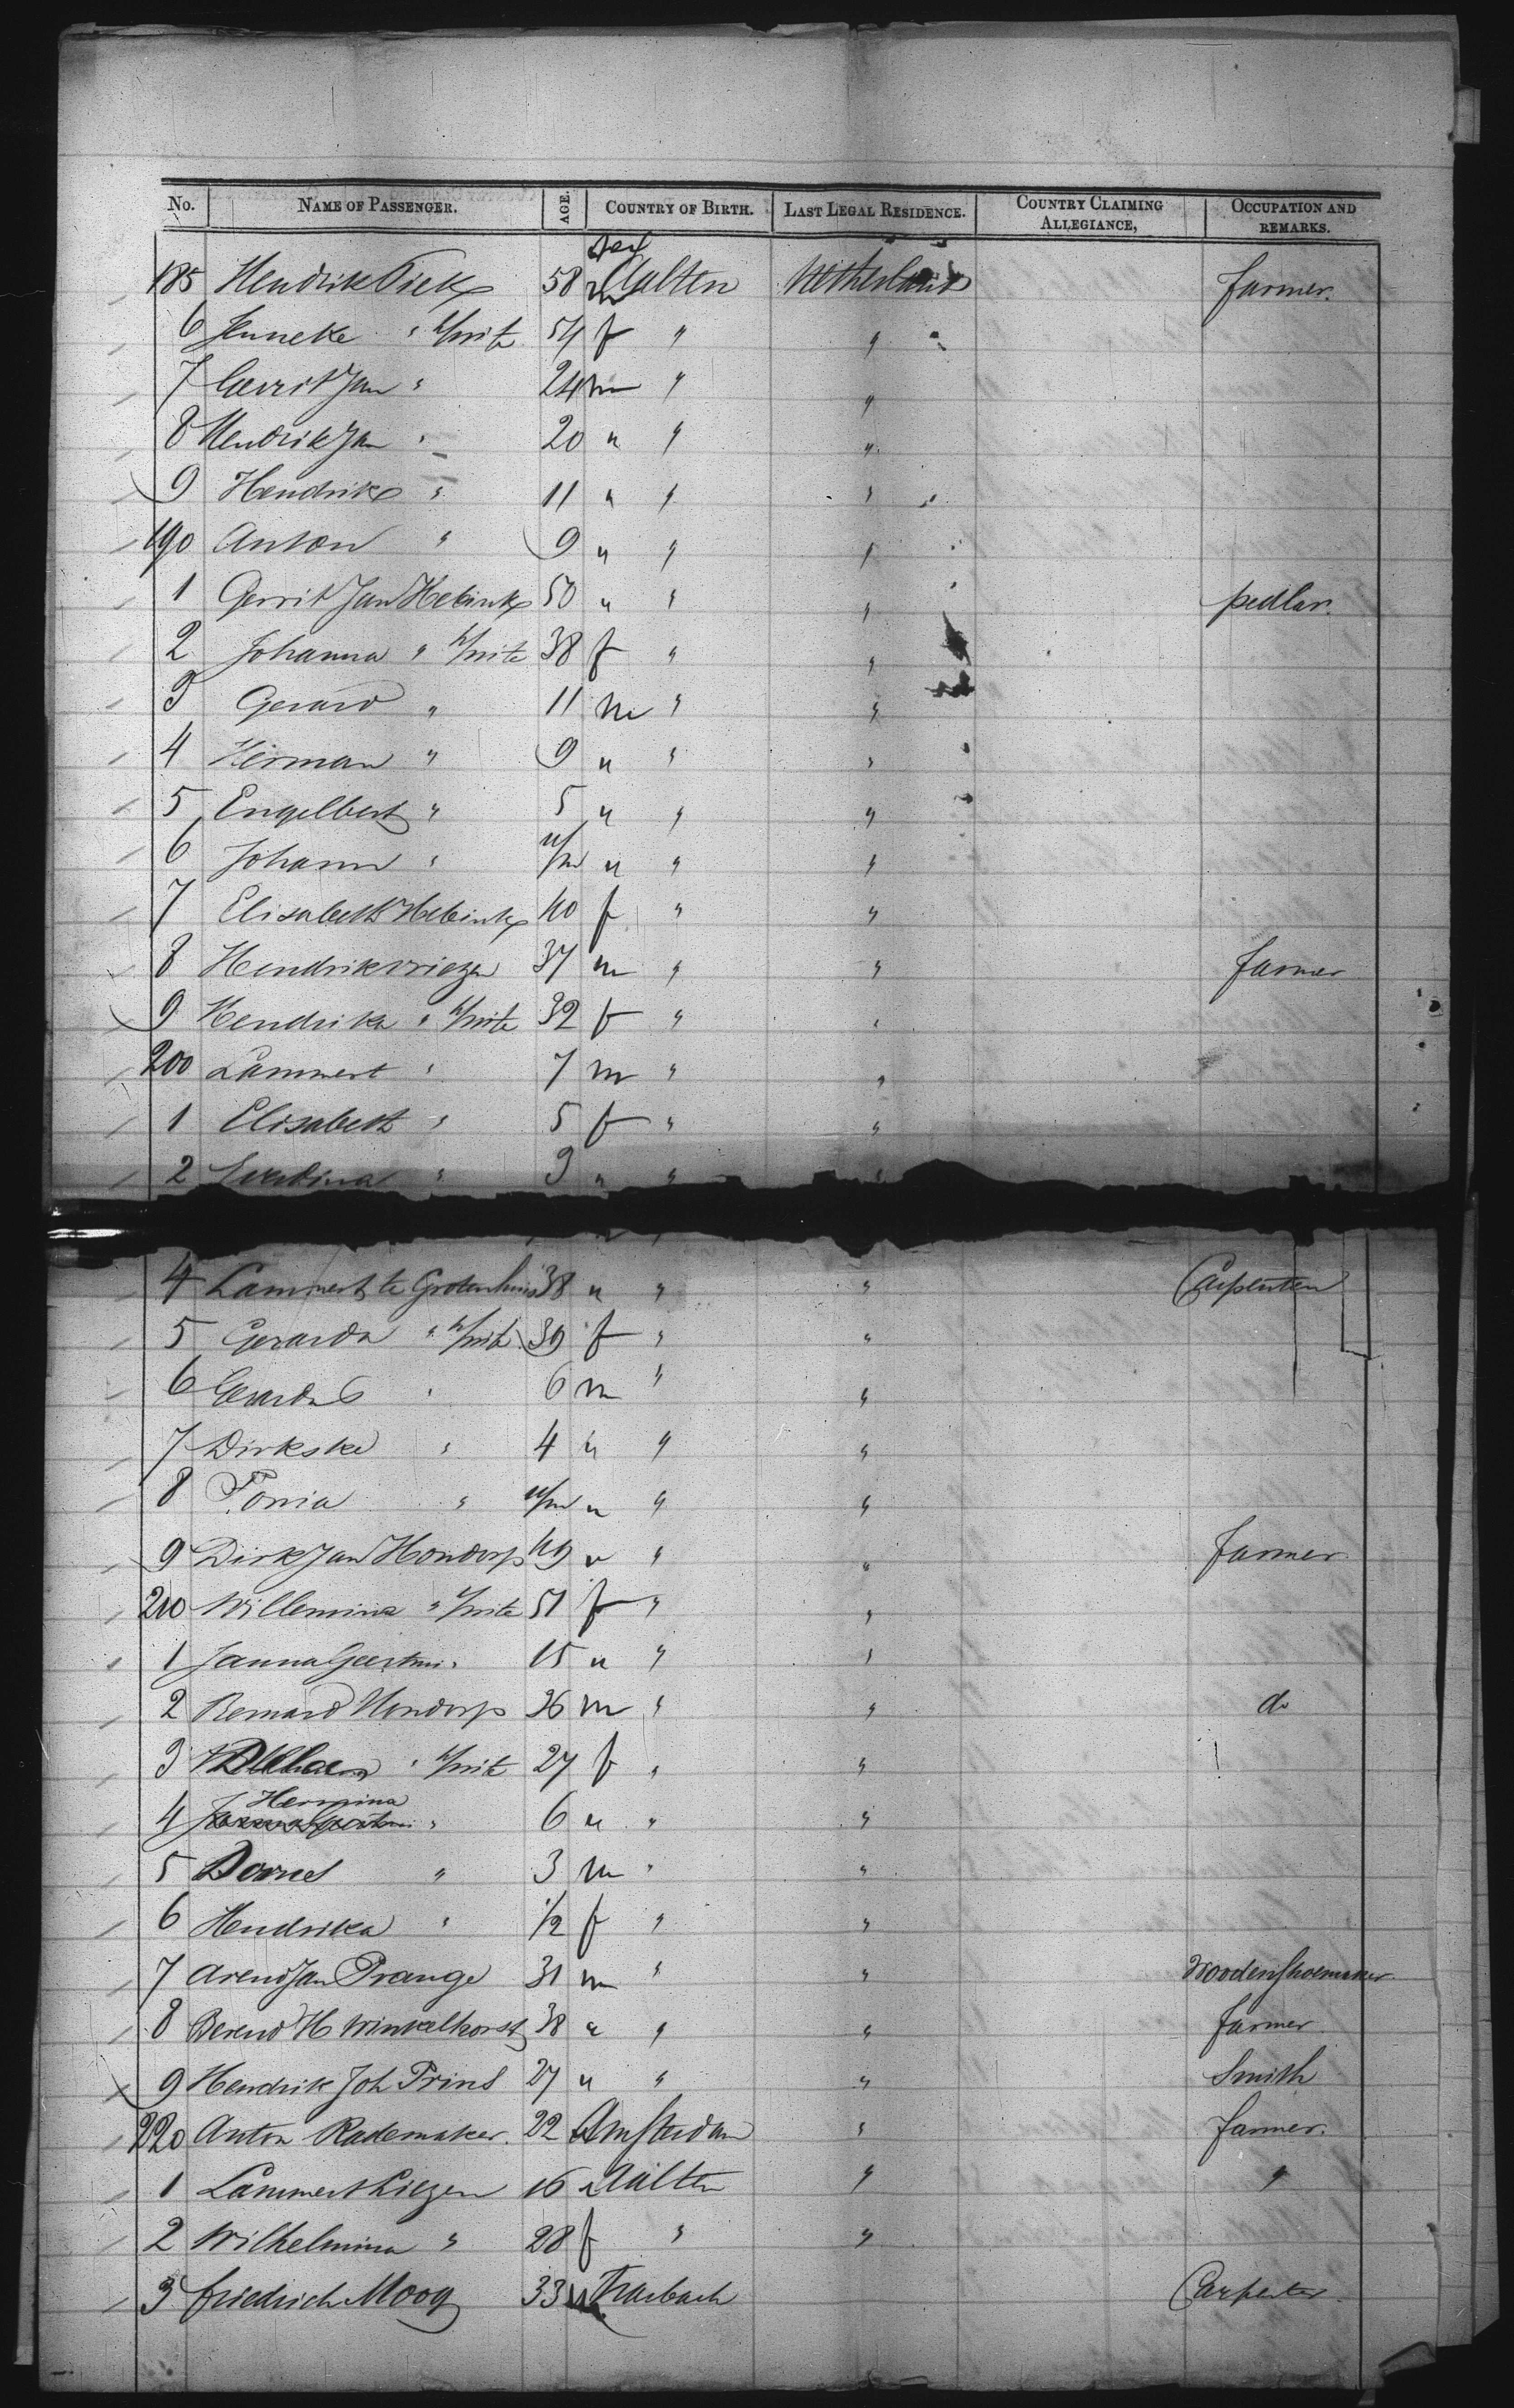 No. NAME OF PASSENGER. AGE. COUNTRY OF BIRTH. LAST LEGAL RESIDENCE. COUNTRY CLAIMING ALLEGIANCE, OCCUPATION AND REMARKS.
Sex
185 Hendrik Piek 58 m Aalten Netherland farmer.
6 Jenneke " 54 f " "
7 Gerrit Jan " 24 m " "
8 Hendrik Jan " 20 " " "
9 Hendrik " 11 " " "
190 Anton " 9 " " "
1 Gerrit Jan Hebink 50 " " " pedlar.
2 Johanna " 38 f " "
3 Gerard " 11 m " "
4 Herman " 9 " " "
5 Engelbert " 5 " " "
6 Johann " " " "
7 Elisabeth Hebink 40 f " "
8 Hendrik Wiezen 37 m " " farmer
9 Hendrika " 32 f " "
200 Lammert " 7 m " "
1 Elisabeth " 5 f " "
2 Everdina " 3 " " "
4 Lammert te Grotenhuis 38 " " " Carpenter
5 Gerarda " 39 f " "
6 " 6 m " "
7 Dirkske " 4 " " "
8 Tonia " " " "
9 Dirk Jan Hondorp 49 " " " farmer
210 Willemina " 51 f " "
1 Janna Geertrui " 15 " " "
2 Bernard Hondorp 36 m " " do
3 " 27 f " "
4 Hermina " 6 " " "
5 " 3 m " "
6 Hendrika " 1/2 f " "
7 Arend Jan Prange 31 m " " Woodenshoemaker
8 Berend H Winkelhorst 38 " " " farmer
9 Hendrik Joh Prins 27 " " " Smith
220 Anton Rademaker. 22 Amsterdam " farmer.
1 Lammert 16 Aalten " "
2 Wilhelmina " 28 f " "
3 Friedrich Moog 33 Trarbach Carpenter